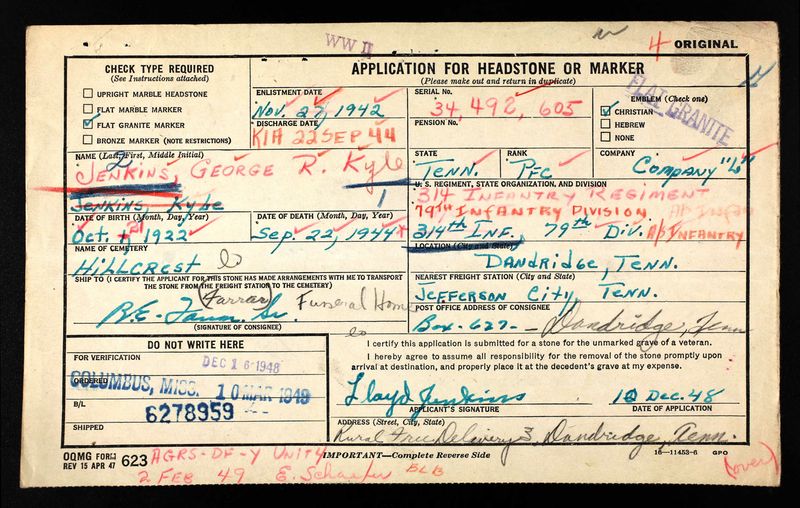 WW II
4 ORIGINAL
CHECK TYPE REQUIRED
(See Instructions attached)
UPRIGHT MARBLE HEADSTONE
FLAT MARBLE MARKER
FLAT GRANITE MARKER
BRONZE MARKER (NOTE RESTRICTIONS)
APPLICATION FOR HEADSTONE OR MARKER
(Please make out and return in duplicate)
ENLISTMENT DATE
Nov. 27, 1942
DISCHARGE DATE
KIA 22 SEP 44
SERIAL No.
34, 492, 605
PENSION No.
EMBLEM (Check one)
CHRISTIAN
HEBREW
NONE
FLAT GRANITE
NAME (Last, First, Middle Initial)
2
JENKINS, GEORGE R. Kyle
1
Jenkins, Kyle
STATE
TENN.
RANK
PFC
COMPANY
COMPANY "L"
U. S. REGIMENT, STATE ORGANIZATION, AND DIVISION
314 INFANTRY REGIMENT
79th INFANTRY DIVISION
314th INF. 79th DIV. A/B INFANTRY
DATE OF BIRTH (Month, Day, Year)
Oct. 1, 1922
DATE OF DEATH (Month, Day, Year)
Sep. 22, 1944
NAME OF CEMETERY
HILLCREST
LOCATION (City and State)
DANDRIDGE, TENN.
SHIP TO (I CERTIFY THE APPLICANT FOR THIS STONE HAS MADE ARRANGEMENTS WITH ME TO TRANSPORT
THE STONE FROM THE FREIGHT STATION TO THE CEMETERY)
(Farrar) Funeral Home
R.E. Farrar Sr.
(SIGNATURE OF CONSIGNEE)
NEAREST FREIGHT STATION (City and State)
JEFFERSON CITY, TENN.
POST OFFICE ADDRESS OF CONSIGNEE
Box-627- Dandridge, Tenn
DO NOT WRITE HERE
FOR VERIFICATION
DEC 16 1948
ORDERED
COLUMBUS, MISS. 10 MAR 1949
B/L
6278959
SHIPPED
I certify this application is submitted for a stone for the unmarked grave of a veteran.
I hereby agree to assume all responsibility for the removal of the stone promptly upon
arrival at destination, and properly place it at the decedent's grave at my expense.
Lloyd Jenkins
10 Dec. 48
APPLICANT'S SIGNATURE
DATE OF APPLICATION
ADDRESS (Street, City, State)
Rural Free Delivery 3, Dandridge, Tenn.
OQMG FORM
REV 15 APR 47 623
IMPORTANT—Complete Reverse Side
16—11453-6 GPO
AGRS-DF-Y UNITY
2 FEB 49 E. Schaefer BLB
(over)